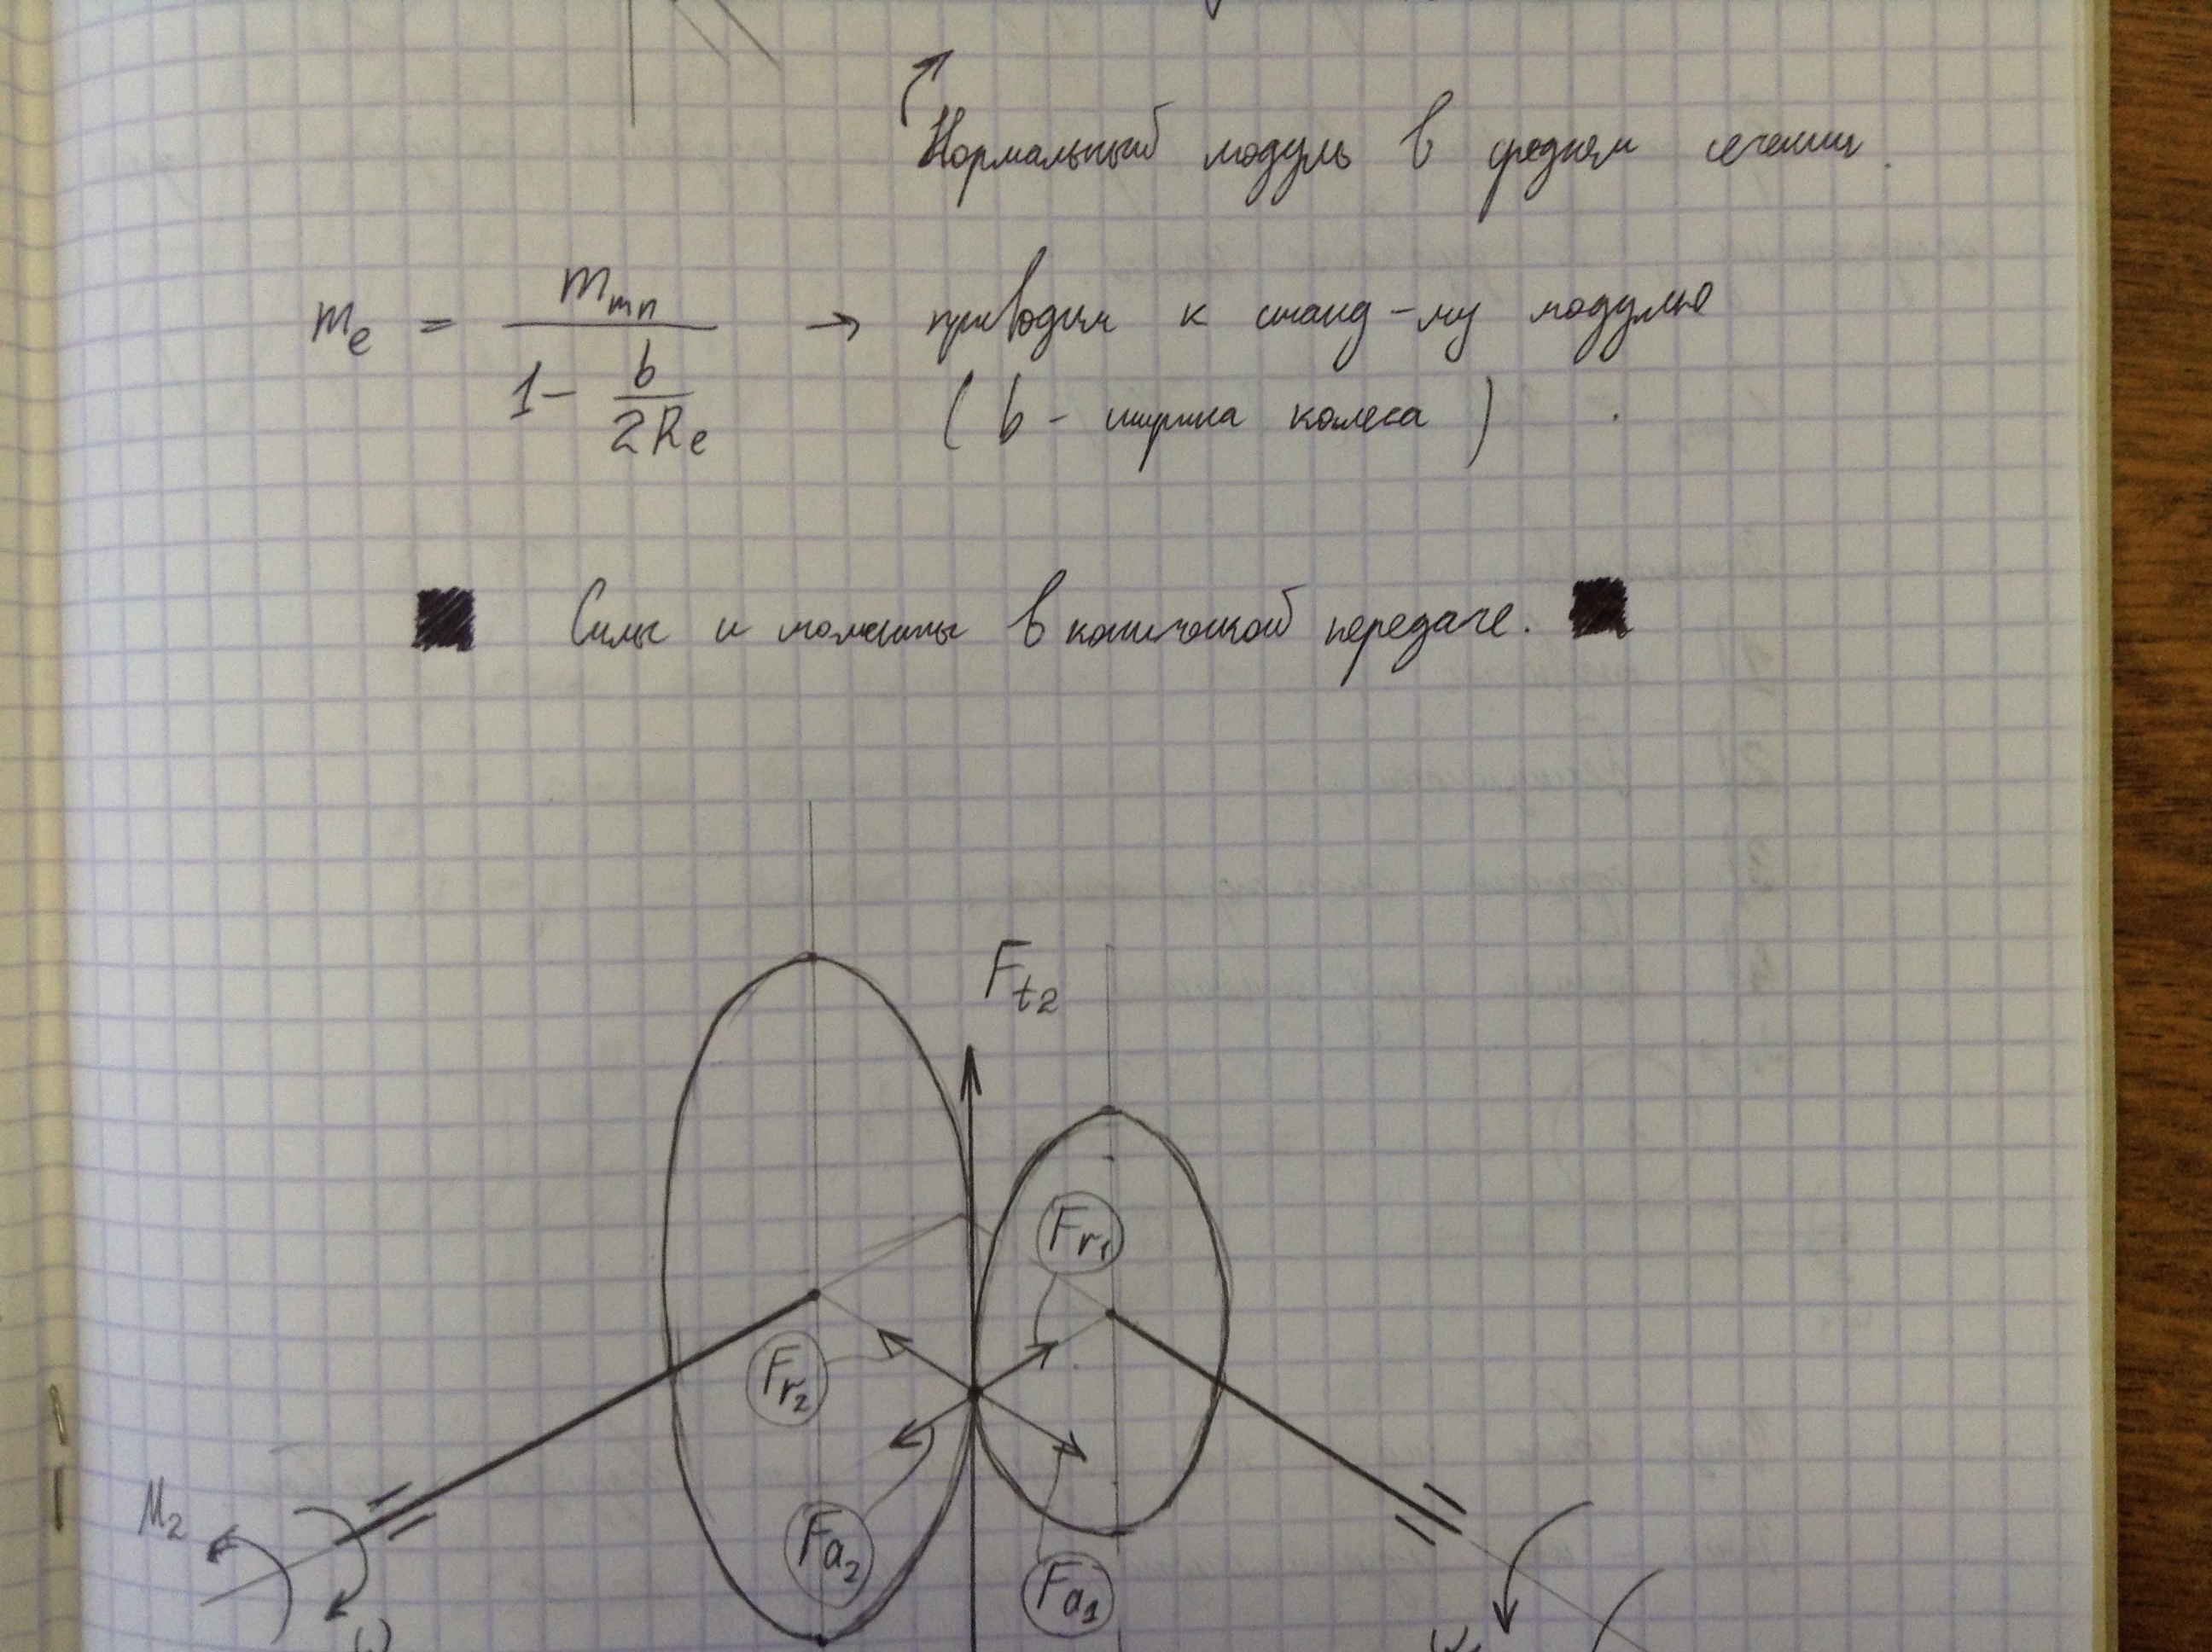 Нормальный модуль в среднем сечении.
m_e = m_mn / (1 - b / 2R_e) → приводим к станд-му модулю
(b - ширина колеса)
Силы и моменты в конической передаче.
F_t2
F_r1
F_r2
M_2
F_a2
F_a1
ω